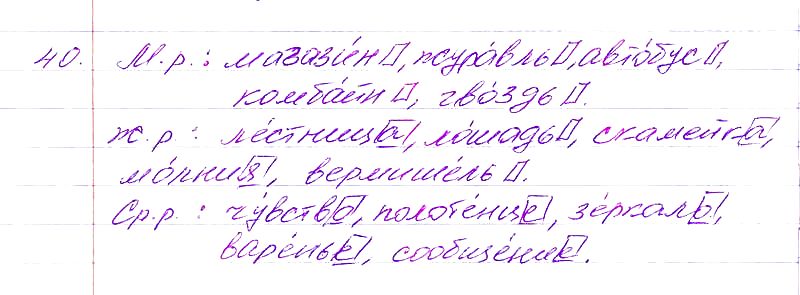 40. М.р.: магази́н□, жура́вль□, авто́бус□,
комба́йн□, гво́здь□.
Ж.р.: ле́стница, ло́шадь□, скамейка,
мо́лния, вермише́ль□.
Ср.р.: чу́вство, полоте́нце, зе́ркало,
варе́нье, сообще́ние.